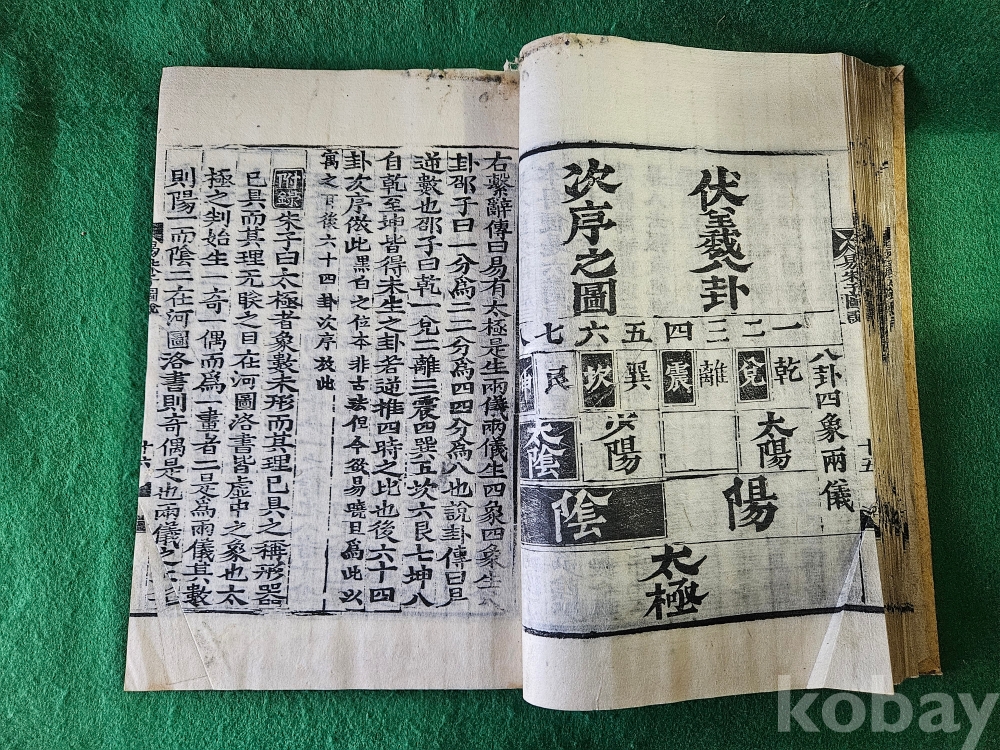 伏羲八卦
次序之圖
一二三四五六七八
乾兌離震巽坎艮坤
太陽
少陽
太陰
陽陰
太極
八卦四象兩儀
易朱子圖說
十五
右繫辭傳曰易有太極是生兩儀兩儀生四象四象生八
卦邵子曰一分為二二分為四四分為八也說卦傳曰易
逆數也邵子曰乾一兌二離三震四巽五坎六艮七坤八
自乾至坤皆得未生之卦若逆推四時之比也後六十四
卦次序倣此黑白之位本非古法但今欲易曉且為此以
寓之耳後六十四卦次序放此
附錄朱子曰太極者象數未形而其理已具之稱形器
已具而其理无朕之目在河圖洛書皆虛中之象也太
極之判始生一奇一偶而為一畫者二是為兩儀其數
則陽一而陰二在河圖洛書則奇偶是也兩儀之上
十六
kobay